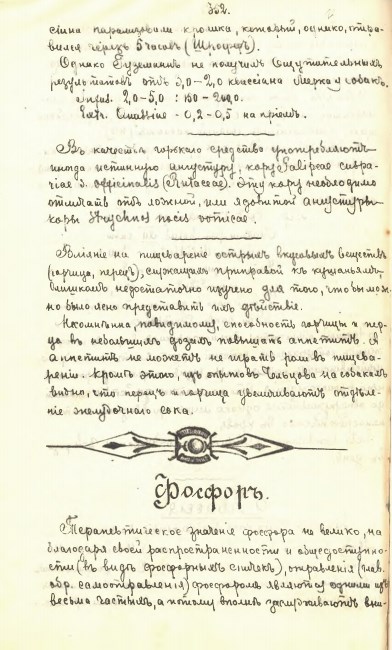 352.
сіина парализовали кролика, который, однако, опра-
вился через 5 часов (Шроффъ).
Однако Гуземаннъ не получилъ ощутительныхъ
результатовъ отъ 3,0-2,0 квассіина Мерка у собакъ.
Infus. 2,0-5,0 : 150-200,0
Extr. Quassiae - 0,2-0,5 на пріемъ.
Въ качествѣ горькаго средства употребляютъ
иногда истинную ангустуру, кору Galipeae cuspa-
riae s. officinalis (Rutaceae). Эту кору необходимо
отличать отъ ложной, или ядовитой ангустуры
коры Strychnos nucis vomicae.
Вліяніе на пищевареніе острыхъ вкусовыхъ веществъ
(горчица, перец), служащихъ приправой къ кушаньямъ,
слишкомъ недостаточно изучено для того, чтобы мож-
но было ясно представить ихъ дѣйствіе.
Несомнѣнна, повидимому, способность горчицы и пер-
ца въ небольшихъ дозахъ повышать аппетитъ. А
аппетитъ не можетъ не играть роли въ пищева-
реніи. Кромѣ этого, изъ опытовъ Чельцова на собакахъ
видно, что перецъ и горчица увеличиваютъ отдѣле-
ніе желудочнаго сока.
Фосфоръ.
Терапевтическое значеніе фосфора не велико, но
благодаря своей распространенности и общедоступно-
сти (въ видѣ фосфорныхъ спичекъ), отравленія (глав.
обр. самоотравленія) фосфоромъ являются одними изъ
весьма частыхъ, а потому вполнѣ заслуживаютъ вни-